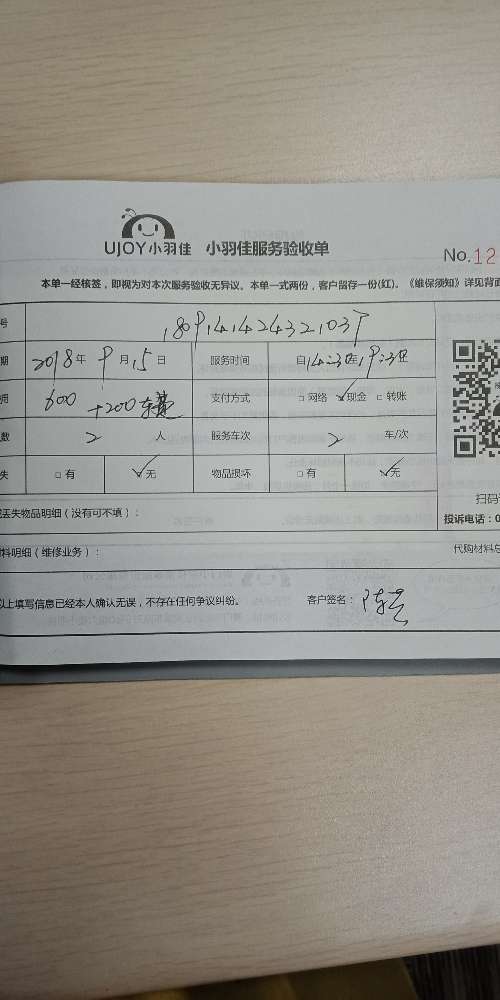 UJOY小羽佳 小羽佳服务验收单
No.12
本单一经核签，即视为对本次服务验收无异议。本单一式两份，客户留存一份(红)。《维保须知》详见背面
号
期 2018年9月15日 服务时间 自14:30至19:30
用 600+200 支付方式 □网络 ☑现金 □转账
数 2人 服务车次 2车/次
失 □有 ☑无 物品损坏 □有 ☑无
扫码
丢失物品明细（没有可不填）： 投诉电话：0
料明细（维修业务）： 代购材料总
以上填写信息已经本人确认无误，不存在任何争议纠纷。 客户签名：